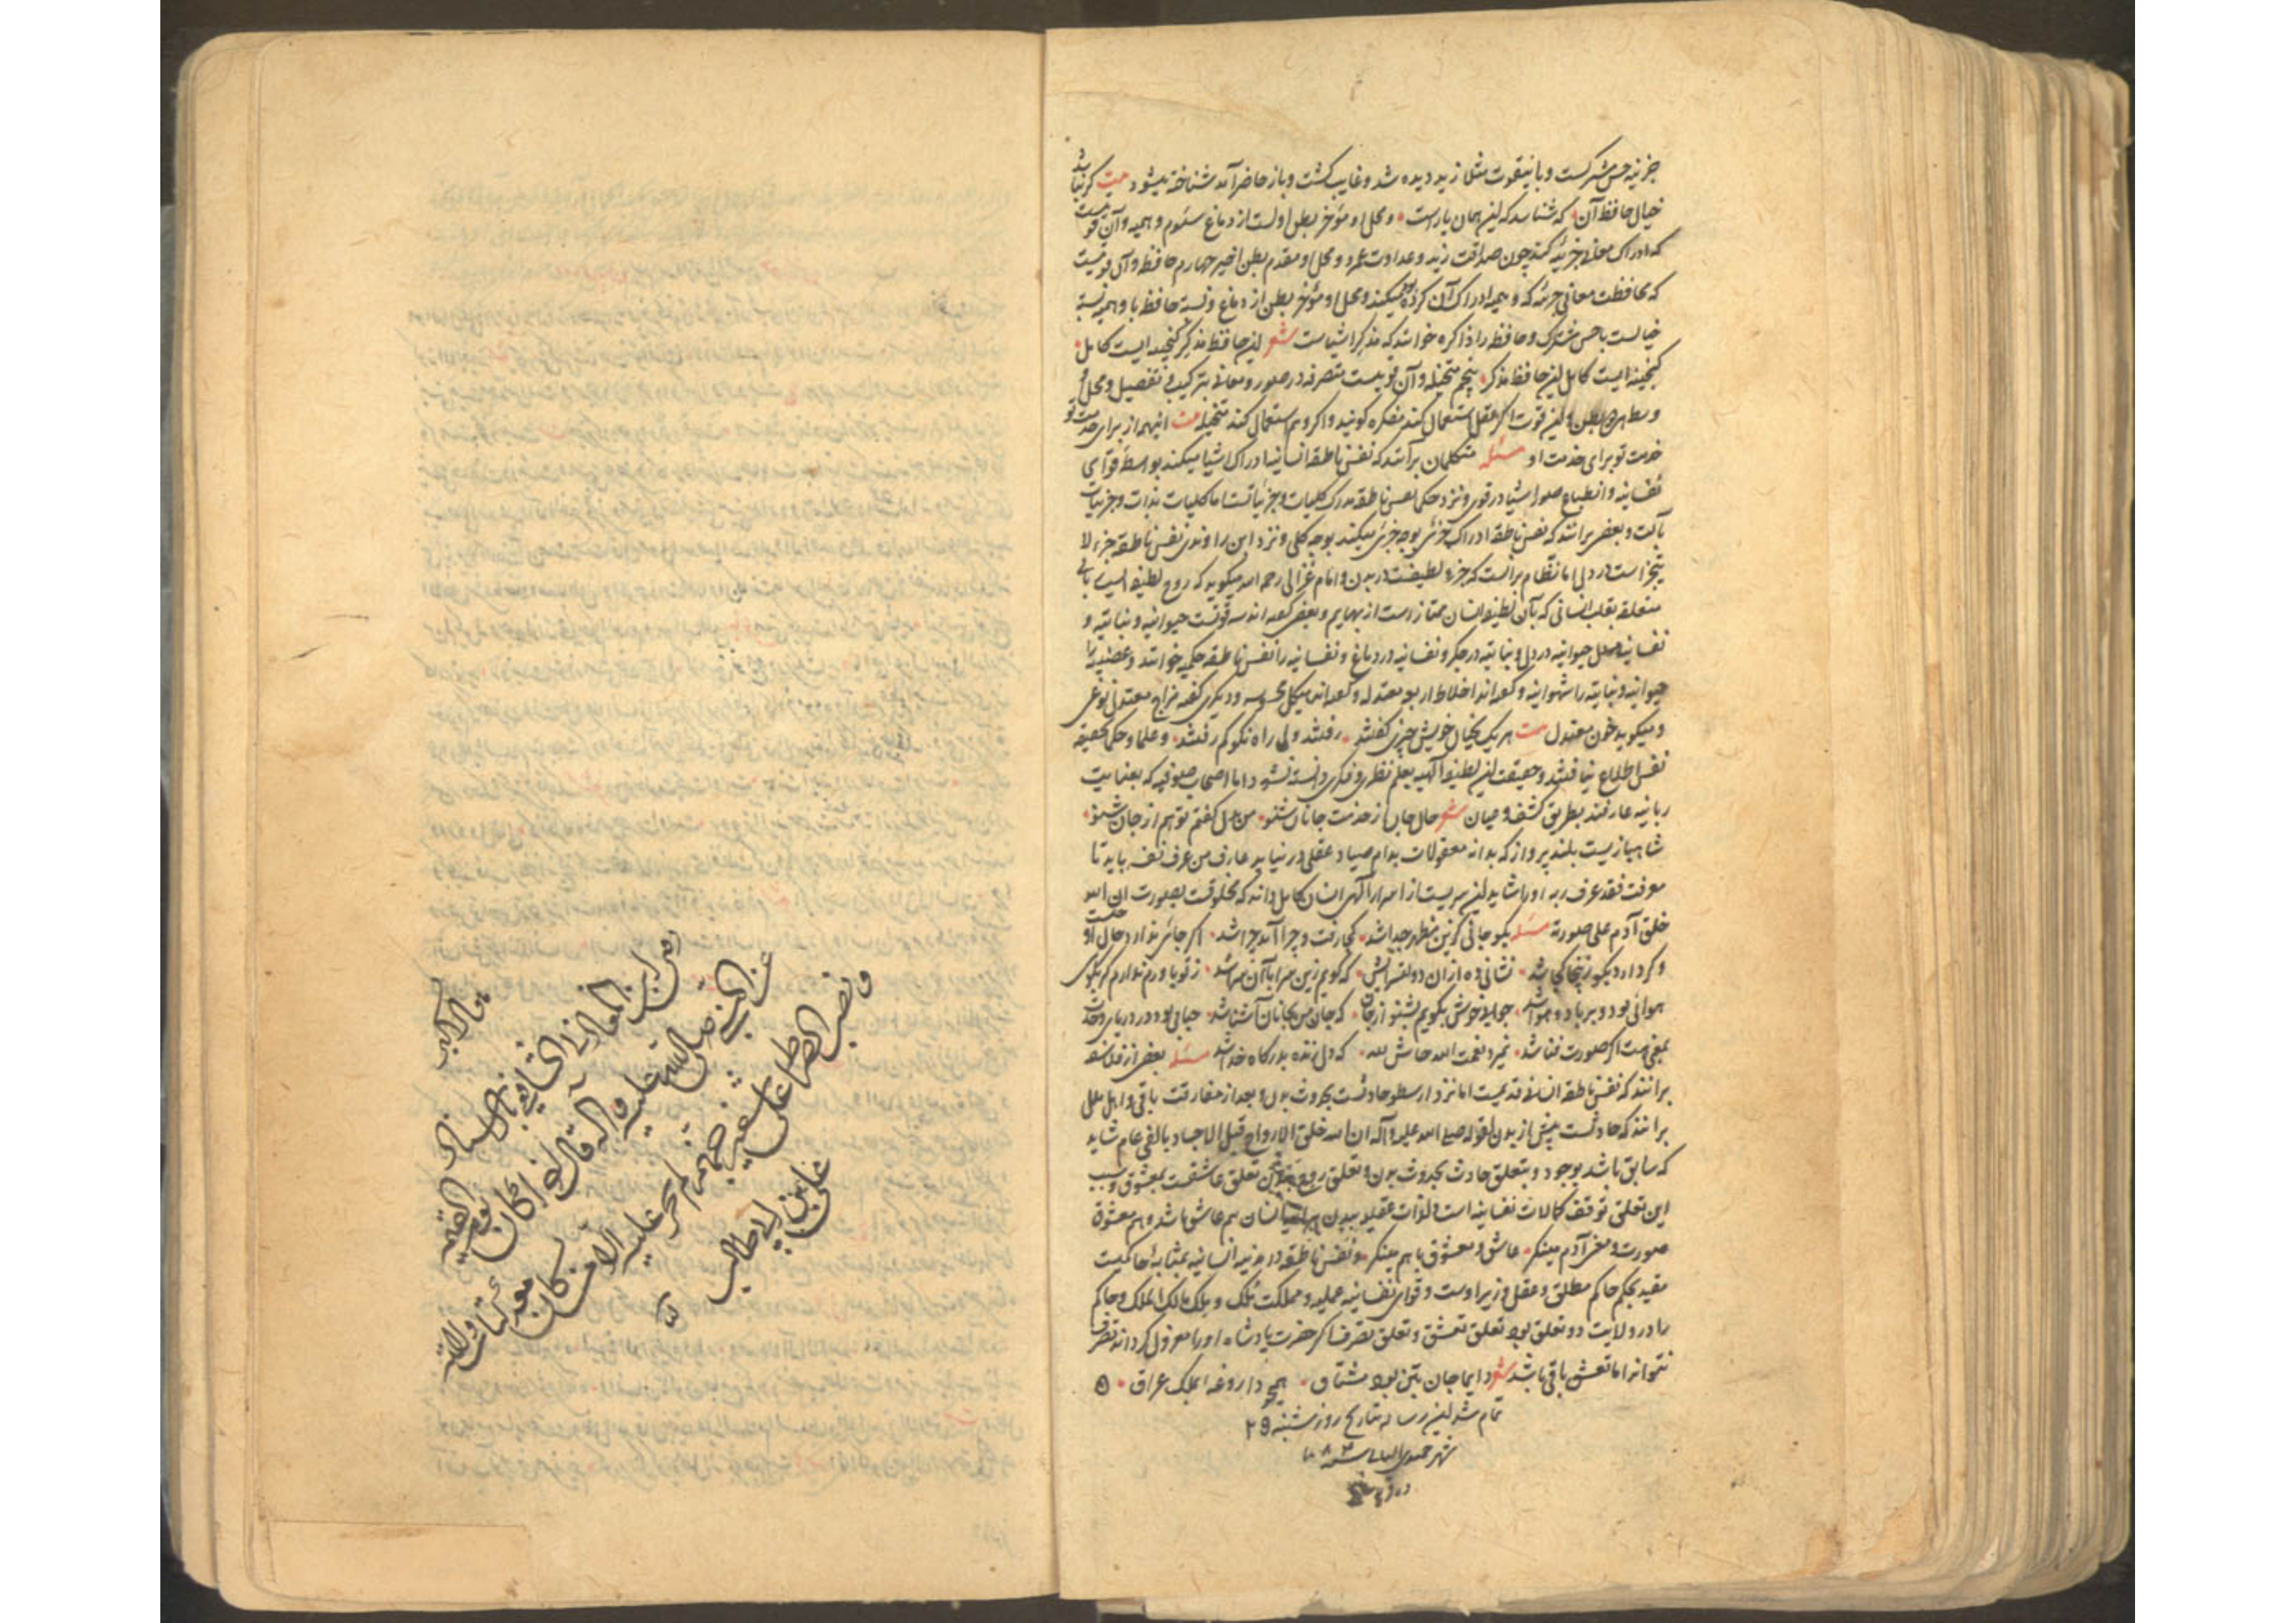 خزینه حس مشترکست و باینقوت مثلا زید دیده شد و غایب کشت و باز حاضر آمد شناخته میشود بیت کر نباشد
خیال حافظ آن که شناسد که این همان یارست و محل او مؤخر بطن اولست از دماغ سئوم وهمیه و آن قوتیست
که ادراک معانی جزئیه کند چون صداقت زید و عداوت عمرو و محل او مقدم بطن اخیر چهارم حافظه و آن قوتیست
که محافظت معانی جزئیه که وهمیه ادراک آن کرده میکند و محل او مؤخر بطن از دماغ و نسبت حافظه با وهمیه نسبت
خیالست با حس مشترک و حافظه را ذاکره خوانند که مذکر اشیاست شعر این حافظ مذکر کنجینه ایست کامل
کنجینه ایست کامل این حافظ مذکر پنجم متخیله و آن قوتیست متصرفه در صور و معانی بترکیب و تفصیل و محل او
وسط بطن این قوت اکر عقل استعمال کند مفکره کویند و اکر وهم استعمال کند متخیله بیت اینهمه از برای خدمت تو
خدمت تو برای خدمت او مسئله متکلمان برآنند که نفس ناطقه انسانیه ادراک اشیا میکند بواسطه قوای
نفسانیه و انطباع صور اشیا در قوی و نزد حکما نفس ناطقه مدرک کلیات و جزئیاتست اما کلیات بذات و جزئیات
بآلت و بعضی برانند که نفس ناطقه ادراک جزئی بوجه جزئی میکند بوجه کلی و نزد ابن راوندی نفس ناطقه جزء لا
یتجزا است در دل اما نظام برانست که جزء لطیفست در بدن و امام غزالی رحمه الله میکوید که روح لطیفه ایست ربانی
متعلقه بقلب انسانی که بآن لطیفه انسان ممتاز است از بهایم و بعضی کفته اند سه قوتست حیوانیه و نباتیه و
نفسانیه محل حیوانیه در دل و نباتیه در جکر و نفسانیه در دماغ و نفسانیه را نفس ناطقه حکیم خوانند و غضبیه را
حیوانیه و نباتیه را شهوانیه و کفته اند اخلاط اربعه معتدله و کفته اند هیکل محسوسه و دیکری کفته مزاج معتدل نوعی
و میکوید خون معتدل بیت هر یک بخیال خویش چیزی کفتند رفتند ولی راه نکو کم رفتند و علما و حکما بحقیقه
نفس اطلاع نیافتند و حقیقت این لطیفه الهیه بعلم نظری و فکری دانسته نشود اما اصحاب صوفیه که بعنایت
ربانیه عارفند بطریق کشف و عیان شعر حال جان از خدمت جانان شنو من بدل کفتم تو هم از جان شنو
شاهبازیست بلند پرواز که بدانه معقولات بدام صیاد عقل در نیاید عارف من عرف نفسه باید تا
معرفت فقد عرف ربه او را شاید این سریست از اسرار الهی انسان کامل داند که مخلوقست بصورت ان الله
خلق آدم علی صورته مسئله بکو جانی کزین مظهر جدا شد کجا رفت و چرا آمد چرا شد اکر جائی ندارد حال او چیست
و کر دارد بکو زینجا کجا شد نشانی ده از آن دولتسرایش که کویم زین سرا با آن سرا شد ز تو باور ندارم کر بکوی
هوائی بود و بر باد و هوا شد جوابی خوش بکویم بشنو از جان که جان من بجانان آشنا شد حبابی بود در دریای وحدت
بمعنی هست اکر صورت فنا شد نمیرد نعمت الله حاش لله که دل زنده بدرکاه خدا شد مسئله بعضی از فلاسفه
برانند که نفس ناطقه انسانی قدیمست اما نزد ارسطو حادثست بحدوث بدن و بعد از مفارقت باقی و اهل ملل
برانند که حادثست پیش از بدن لقوله صلی الله علیه و آله ان الله خلق الارواح قبل الاجساد بالفی عام شاید
که سابق باشد بوجود و بتعلق حادث بحدوث بدن و تعلق روح ببدن تعلق عاشقست بمعشوق و سبب
این تعلق توقف کمالات نفسانیه است و لذات عقلیه ببدن انسان هم عاشق باشد و هم معشوق
صورت و معنی آدم مینکر عاشق و معشوق با هم مینکر و نفس ناطقه در مدینه انسانیه بمثابه حاکمیست
مقید بحکم حاکم مطلق و عقل وزیر اوست و قوای نفسانیه عمله و مملکت تلک و ملک مالک الملک و حاکم
را در ولایت دو تعلق بود تعلق تعشق و تعلق تصرف اکر حضرت پادشاه او را معزول کرداند تصرف
نتواند اما تعشق باقی باشد شعر دایما جان بتن بود مشتاق همچو داروغه بملک عراق
تمام شد این رساله بتاریخ روز شنبه ۲۹
شهر جمیدی الثانی سنه
قال اکبر
ابن المغازلی الشافعی باسناده
عن النبی صلی الله علیه و آله قال اذا کان یوم القیمة
و نصب الصراط علی شفیر جهنم لم یجز علیه الا من کان معه کتاب ولایة
علی بن ابی طالب